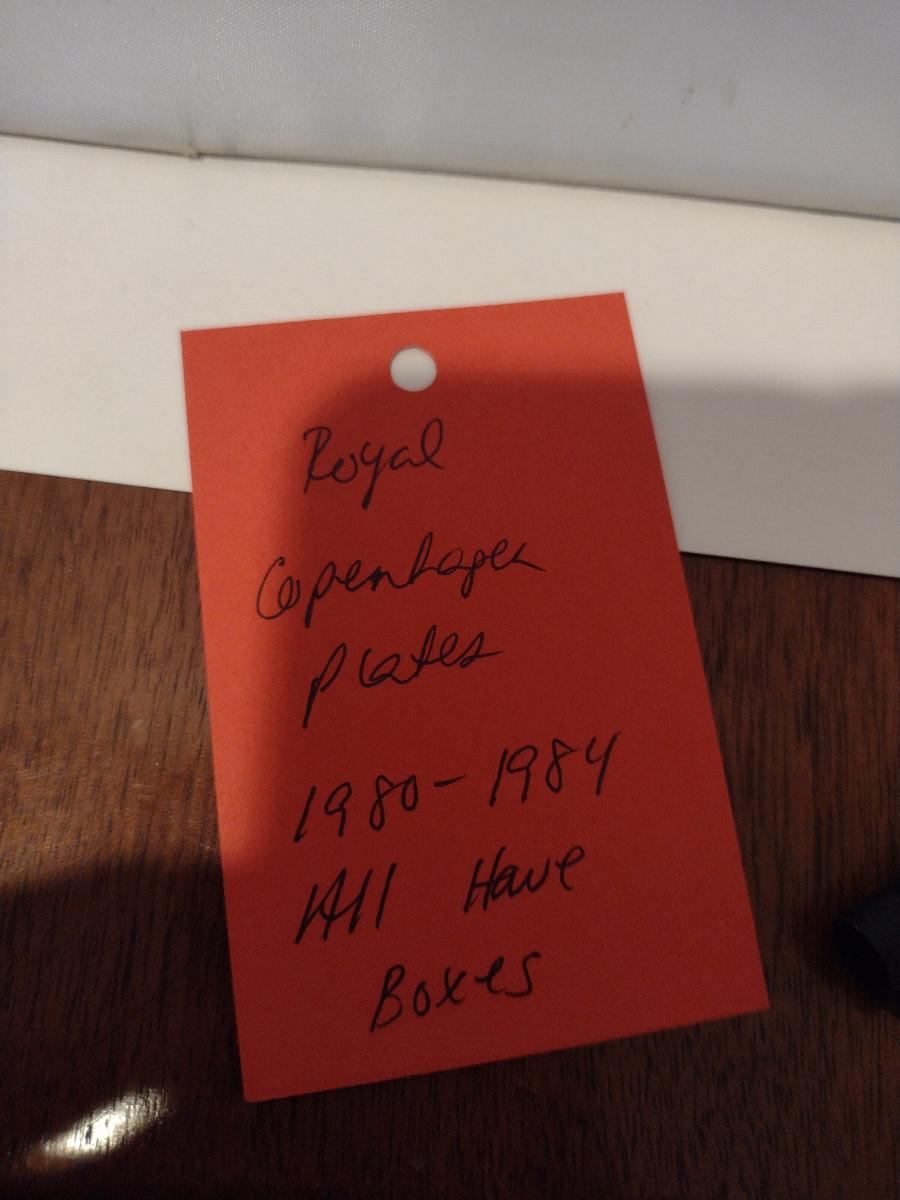 Royal
Copenhagen
Plates
1980-1984
All Have
Boxes